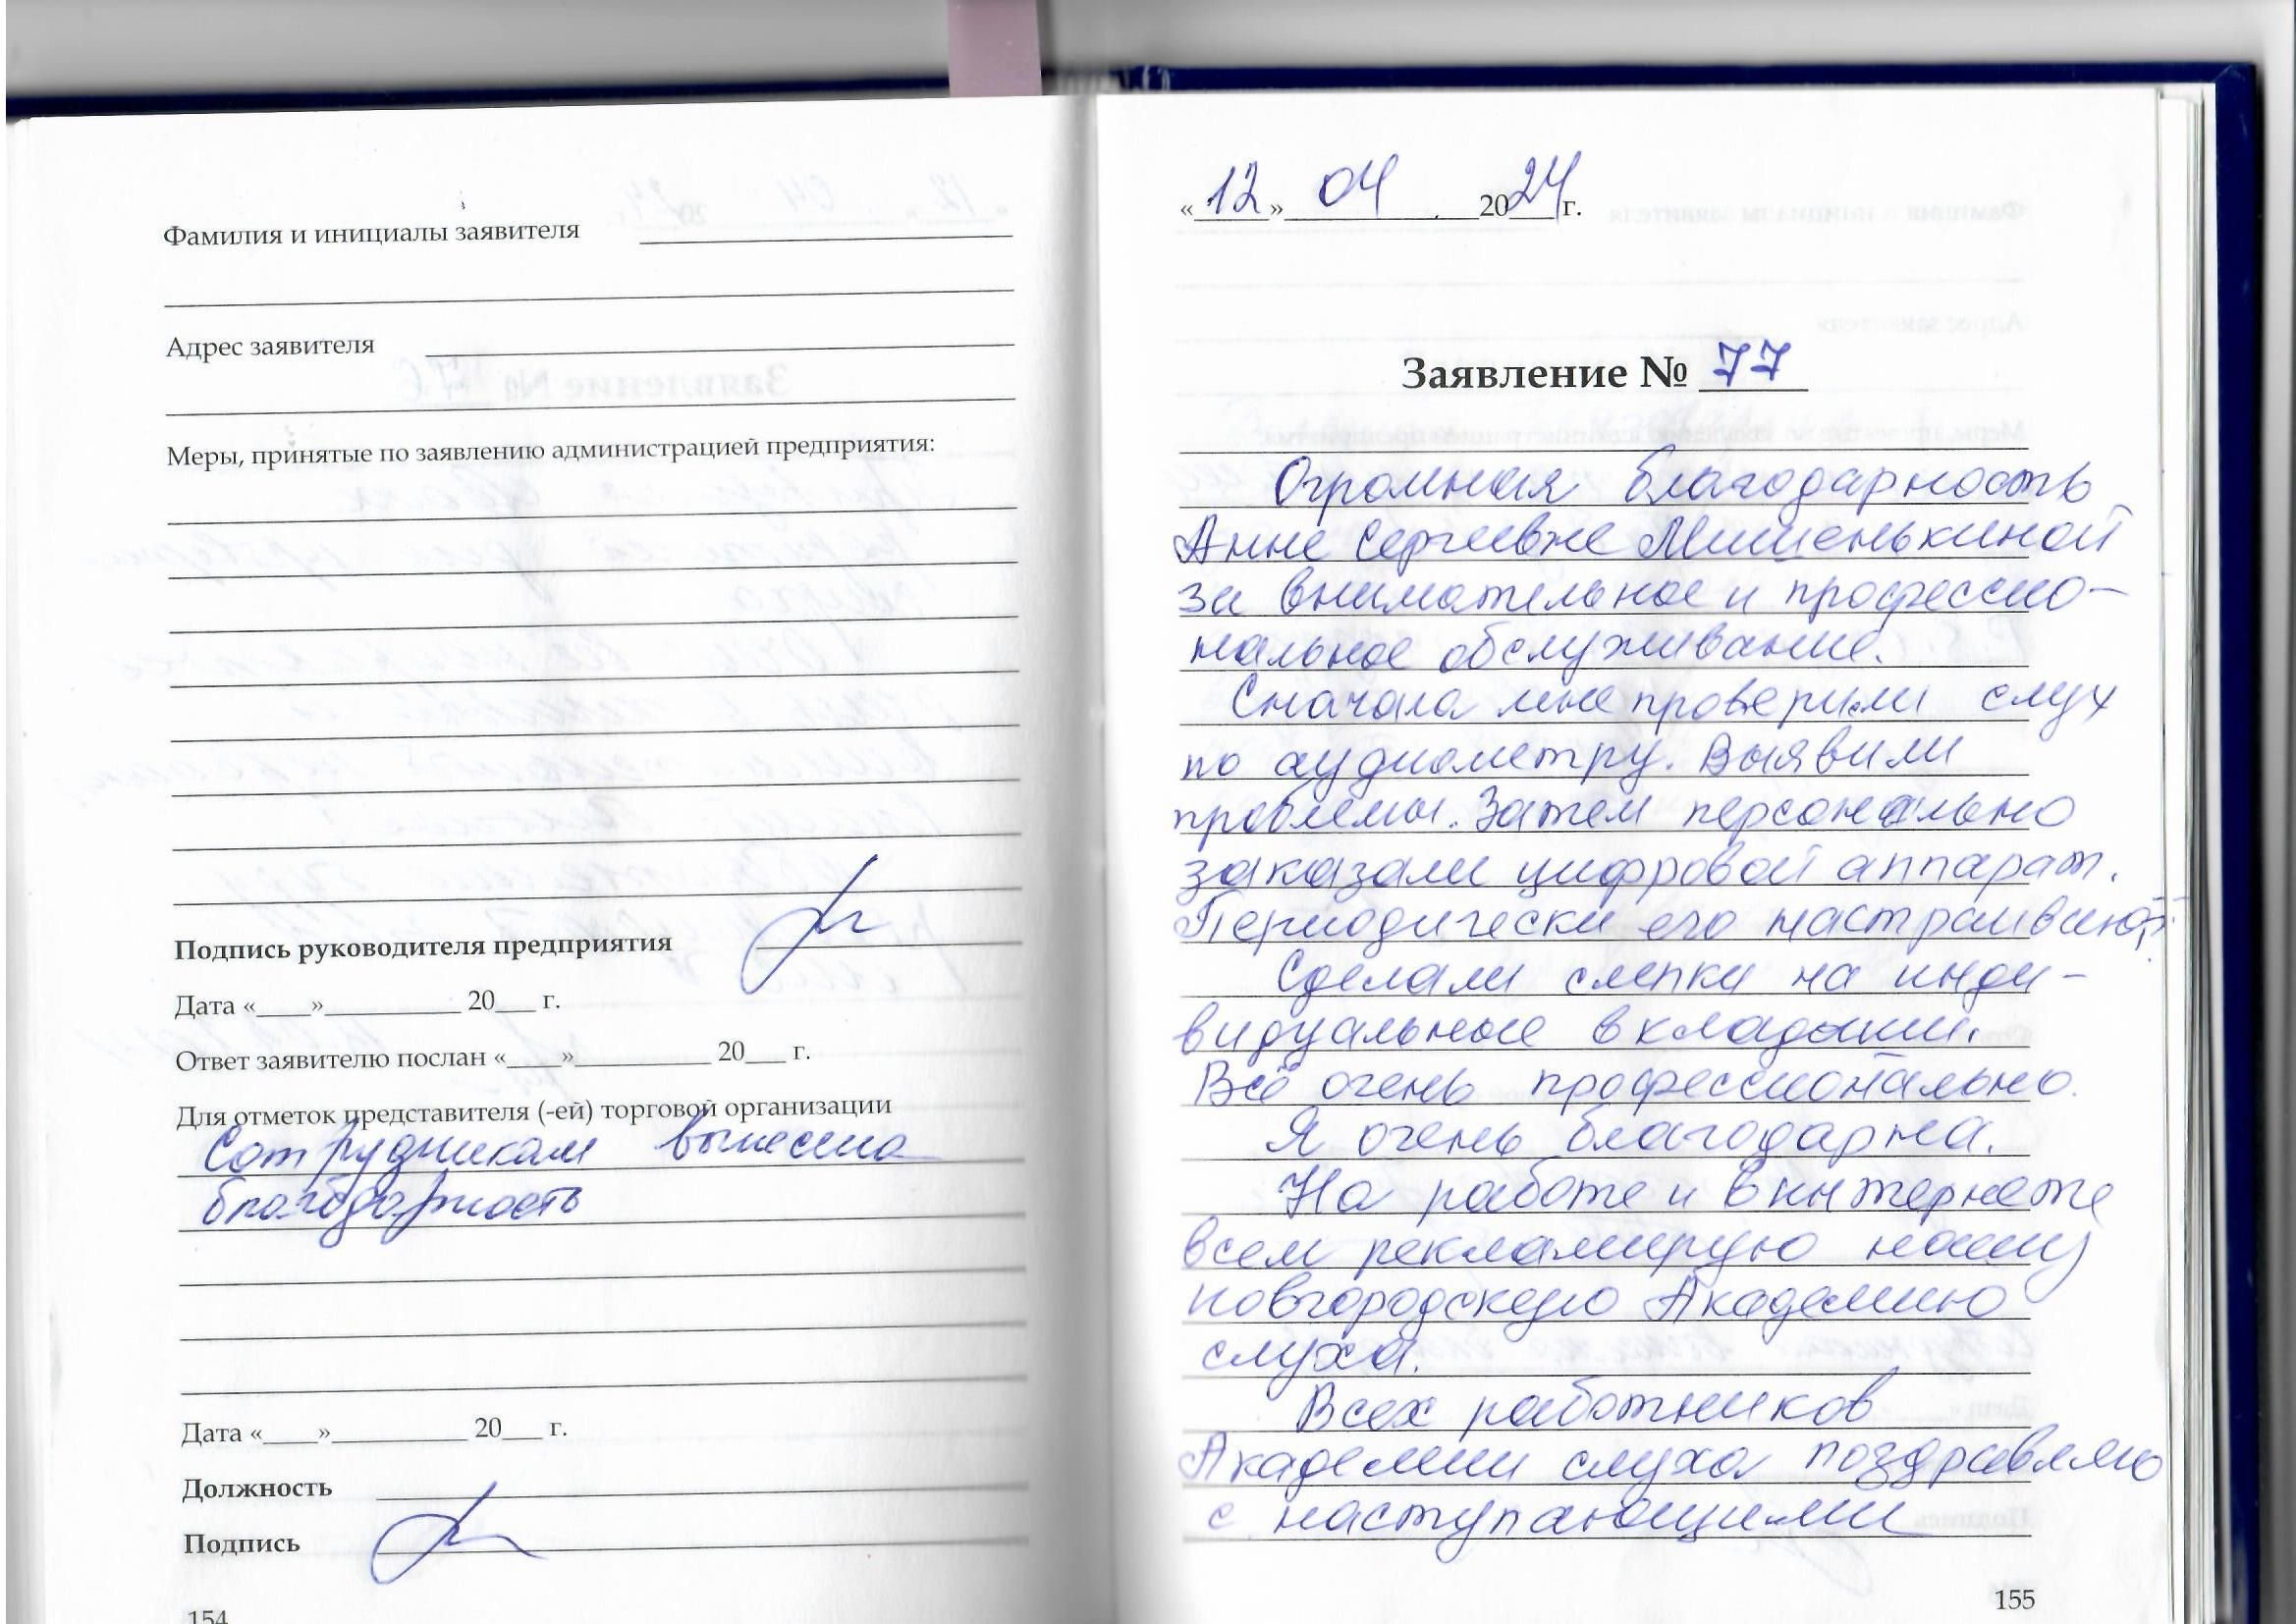 Фамилия и инициалы заявителя
Адрес заявителя
Меры, принятые по заявлению администрацией предприятия:
Подпись руководителя предприятия
Дата «____»__________ 20___ г.
Ответ заявителю послан «____»__________ 20___ г.
Для отметок представителя (-ей) торговой организации
Сотрудникам вынесена
благодарность
Дата «____»__________ 20___ г.
Должность
Подпись
154
«12» 04 2024 г.
Заявление № 77
Огромная благодарность
Анне Сергеевне Мишенькиной
за внимательное и профессио-
нальное обслуживание.
Сначала мне проверили слух
по аудиометру. Выявили
проблемы. Затем персонально
заказали цифровой аппарат.
Периодически его настраивают.
Сделали слепки на инди-
видуальные вкладыши.
Всё очень профессионально.
Я очень благодарна.
На работе и в интернете
всем рекламирую нашу
новгородскую Академию
слуха.
Всех работников
Академии слуха поздравляю
с наступающими
155